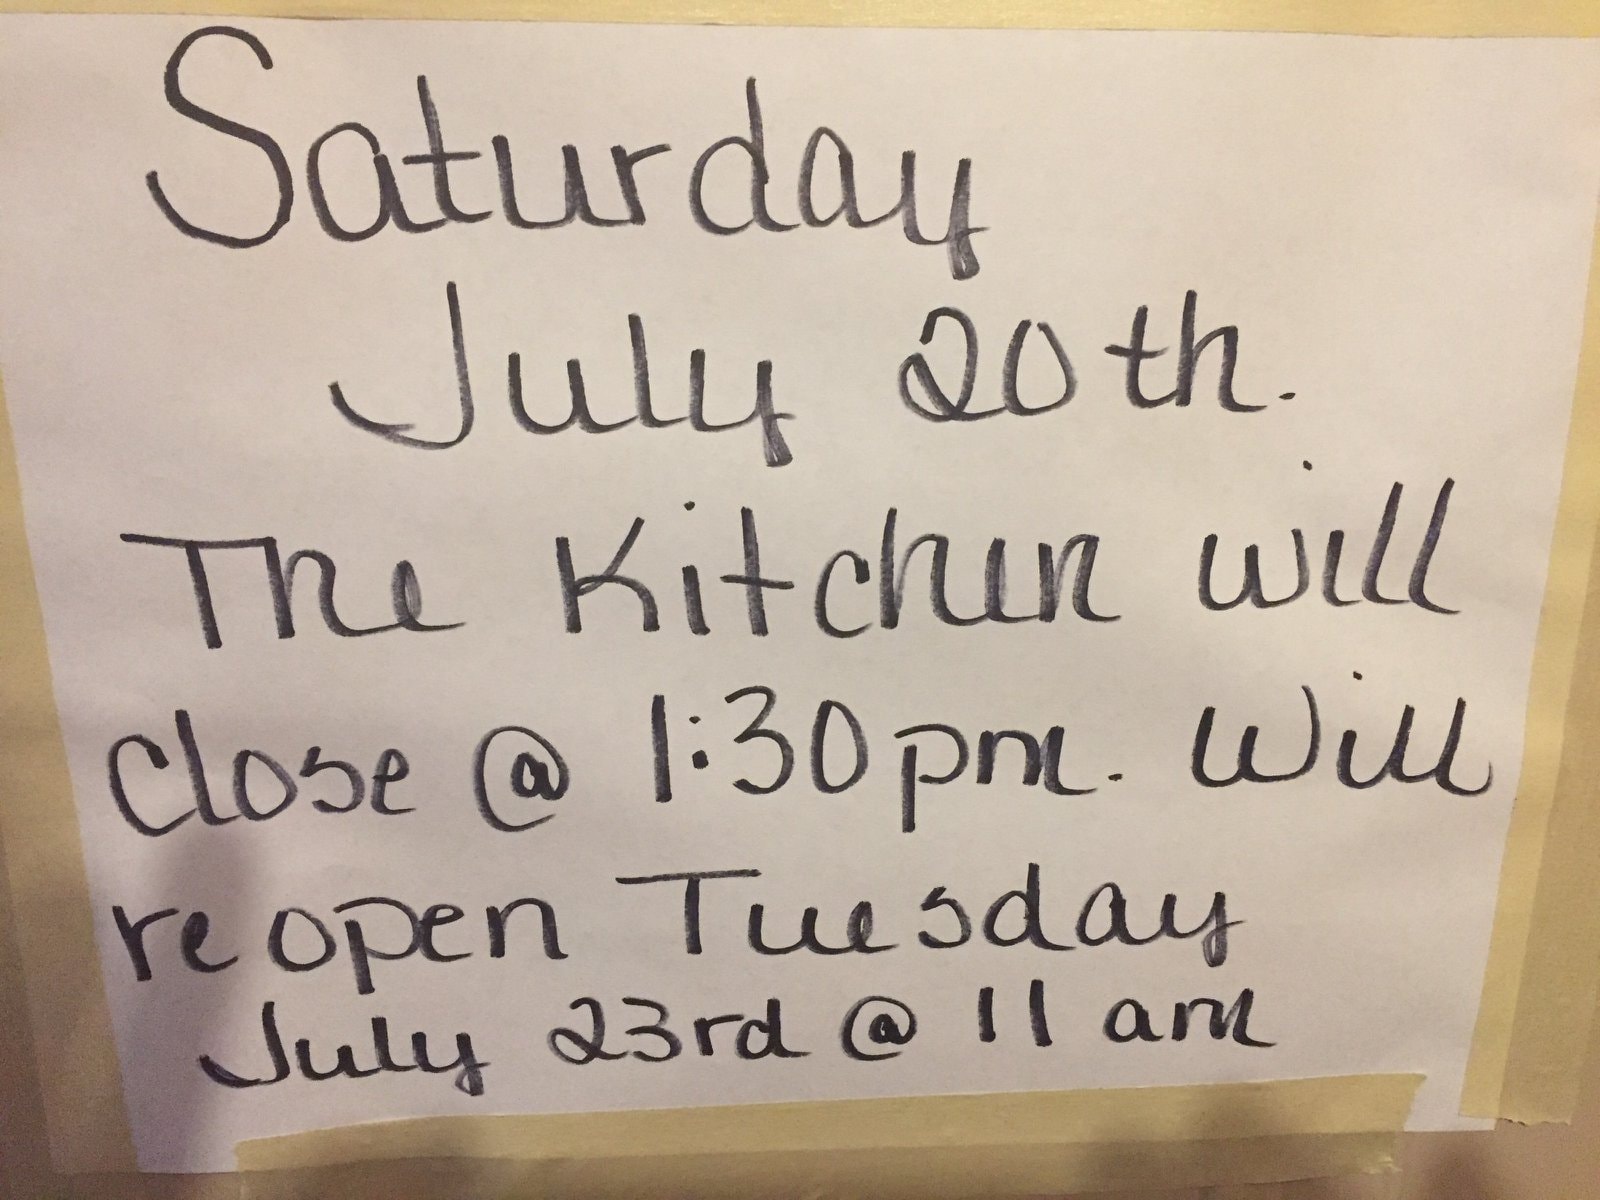 Saturday
July 20th.
The Kitchen will
close @ 1:30pm. Will
reopen Tuesday
July 23rd @ 11 am